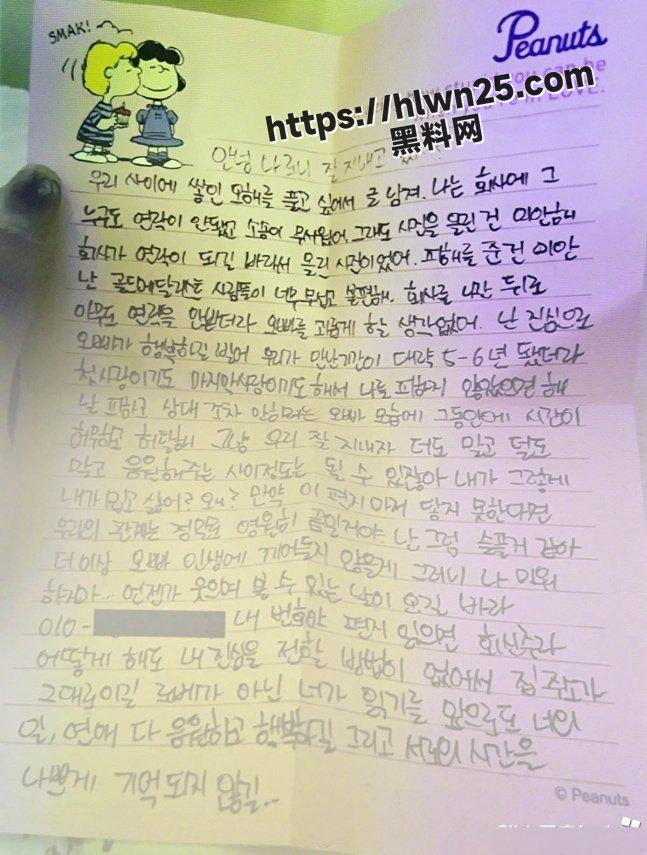 SMAK!
Peanuts
you can be
in LOVE.
https://hlwn25.com
黑料网
안녕 나 잘 지내고
우리 사이에 쌓인 오해를 풀고 싶어서 글 남겨. 나는 회사에 그
누구도 연락이 안됐고 소송이 무서웠어. 그래도 사진을 올린 건 미안해
회사가 연락이 되길 바래서 올린 사진이었어. 피해를 준건 미안
난 골드메달리스트 사람들이 너무 무섭고 불편해. 회사를 나간 뒤로
아무도 연락을 안받더라 오빠를 괴롭게 할 생각없어. 난 진심으로
오빠가 행복하길 빌어 우리가 만난기간이 대략 5-6년 됐더라
첫사랑이기도 마지막사랑이기도해서 나를 피하지 않았으면 해
날 피하고 상대 조차 안하려는 오빠 모습에 그동안에 시간이
허무하고 허탈해 그냥 우리 잘 지내자 더도 말고 덜도
말고 응원해주는 사이정도는 될 수 있잖아 내가 그렇게
내가 밉고 싫어? 왜? 만약 이 편지마저 닿지 못한다면
우리의 관계는 정말로 영원히 끝일거야 난 그럼 슬플거 같아
더이상 오빠 인생에 끼어들지 않을게 그러니 나 미워
하지마.. 언젠가 웃으며 볼 수 있는 날이 오길 바라
010- 내 번호야 편지 읽으면 회신주라
어떻게 해도 내 진심을 전할 방법이 없어서 집 주소가
그대로이길 로베가 아닌 너가 읽기를 앞으로도 너의
일, 연애 다 응원하고 행복하길 그리고 서로의 시간을
나쁘게 기억되지 않길..
© Peanuts